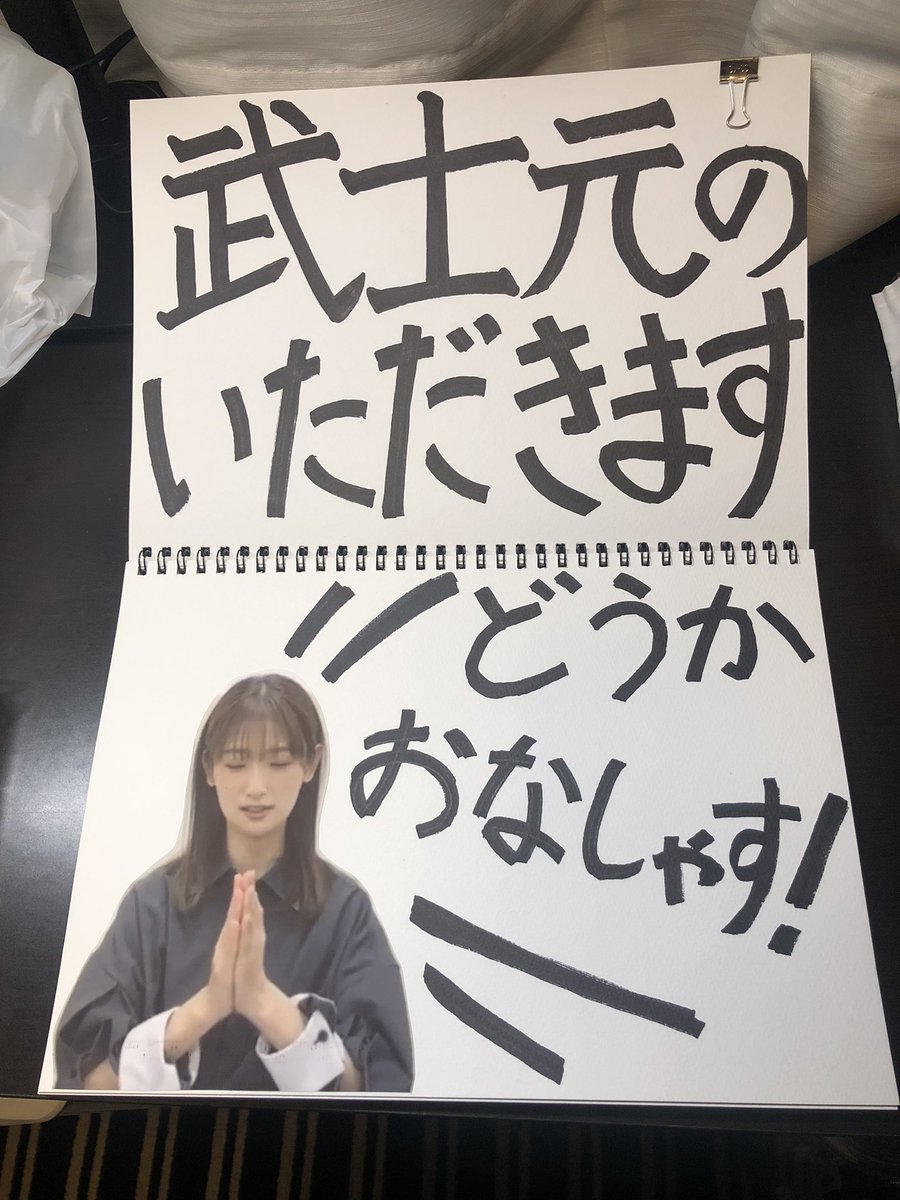 武士元の
いただきます
どうか
おなしゃす!